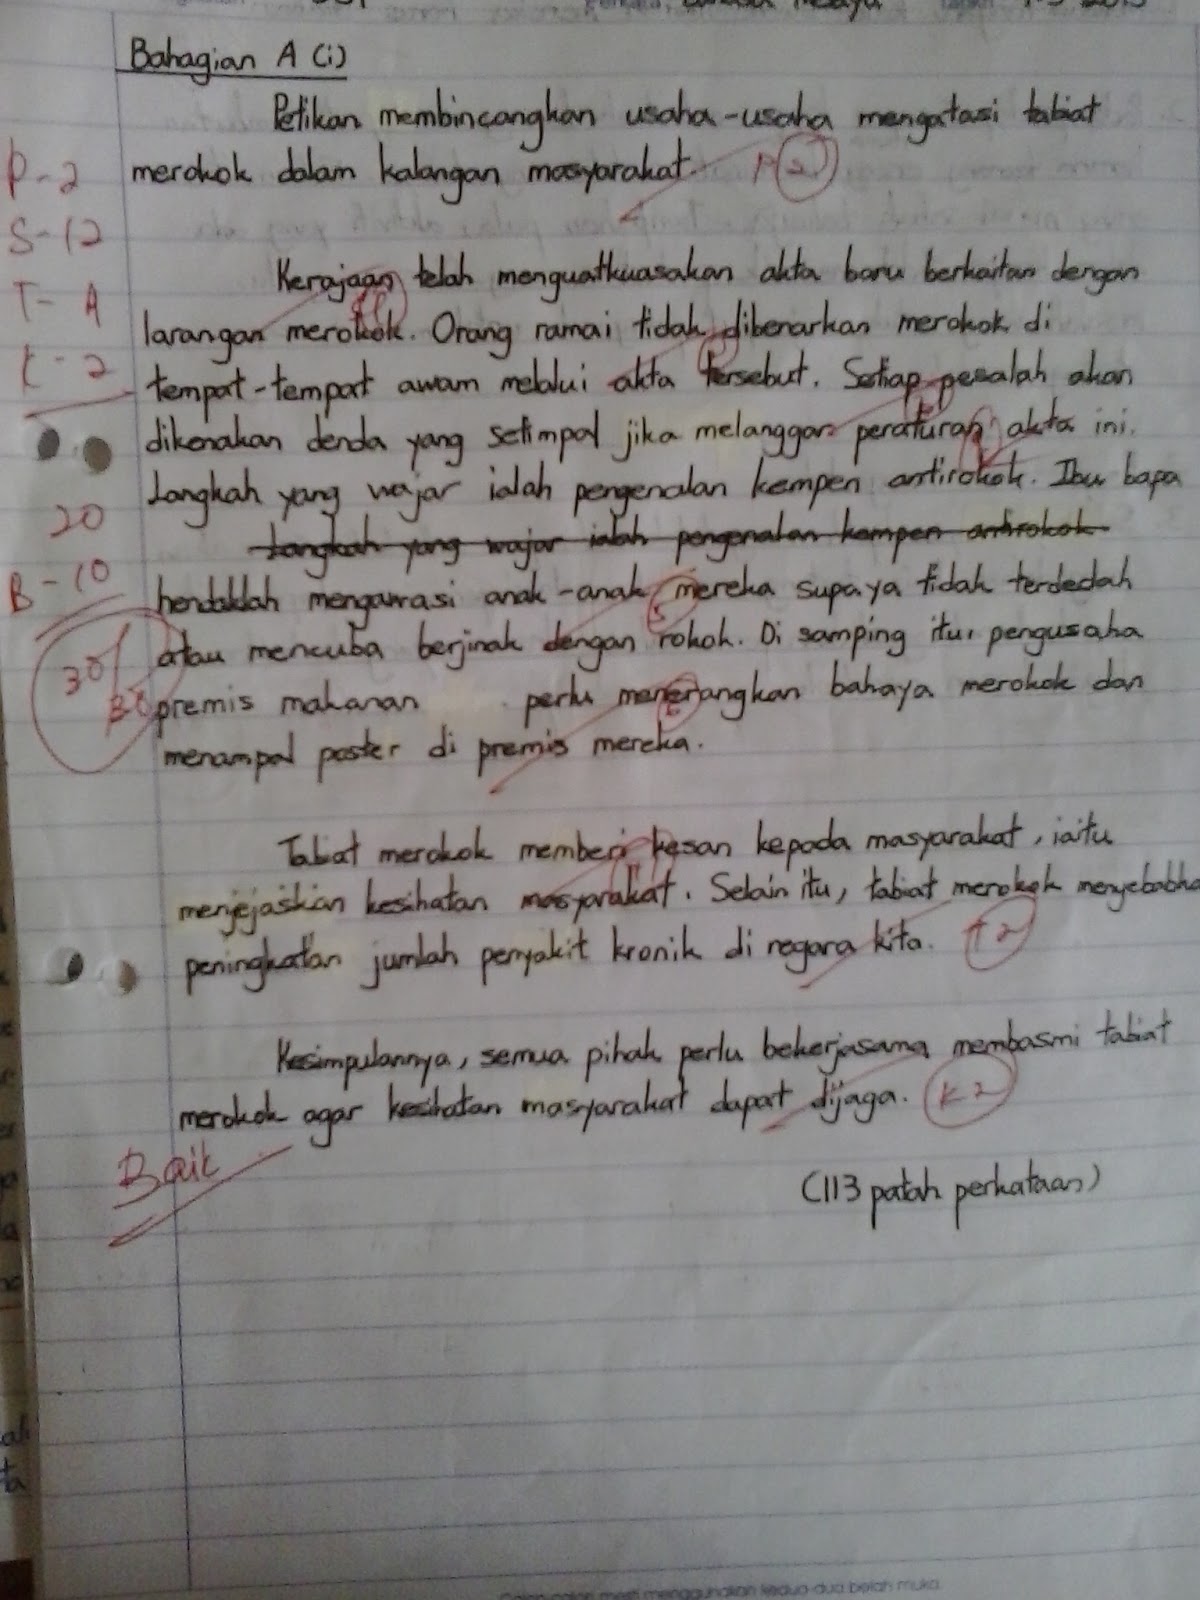 Bahasa Melayu
Bahagian A (i)
Petikan membincangkan usaha-usaha mengatasi tabiat
merokok dalam kalangan masyarakat. P 2
P - 2
S - 12
T - 4
K - 2
Kerajaan telah menguatkuasakan akta baru berkaitan dengan
larangan merokok. Orang ramai tidak dibenarkan merokok di
tempat-tempat awam melalui akta tersebut. Setiap pesalah akan
dikenakan denda yang setimpal jika melanggar peraturan akta ini.
Langkah yang wajar ialah pengenalan kempen antirokok. Ibu bapa
20
Langkah yang wajar ialah pengenalan kempen antirokok
B - 10
hendaklah mengawasi anak-anak mereka supaya tidak terdedah
5
atau mencuba berjinak dengan rokok. Di samping itu, pengusaha
30/
30
premis makanan perlu menerangkan bahaya merokok dan
6
menampal poster di premis mereka.
Tabiat merokok memberi kesan kepada masyarakat, iaitu
menjejaskan kesihatan masyarakat. Selain itu, tabiat merokok menyebabka
peningkatan jumlah penyakit kronik di negara kita. T 2
Kesimpulannya, semua pihak perlu bekerjasama membasmi tabiat
merokok agar kesihatan masyarakat dapat dijaga. K 2
Baik
(113 patah perkataan)
Calon-calon mesti menggunakan kedua-dua belah muka